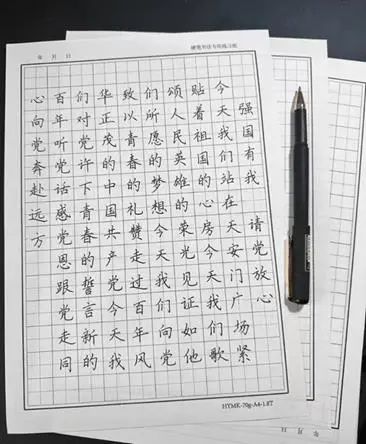 年 月 日
硬笔书法专用练习纸
请党放心
强国有我
今天我们站在天安门广场紧
贴着祖国的心房今天我们歌
颂人民英雄的荣光见证如他
们所愿的梦想今天我们向党
致以青春的礼赞走过百年风
华正茂的中国共产党今天我
们对党许下青春的誓言新的
百年听党话感党恩跟党走同
心向党奔赴远方
HYMK-70g-A4-1.8T